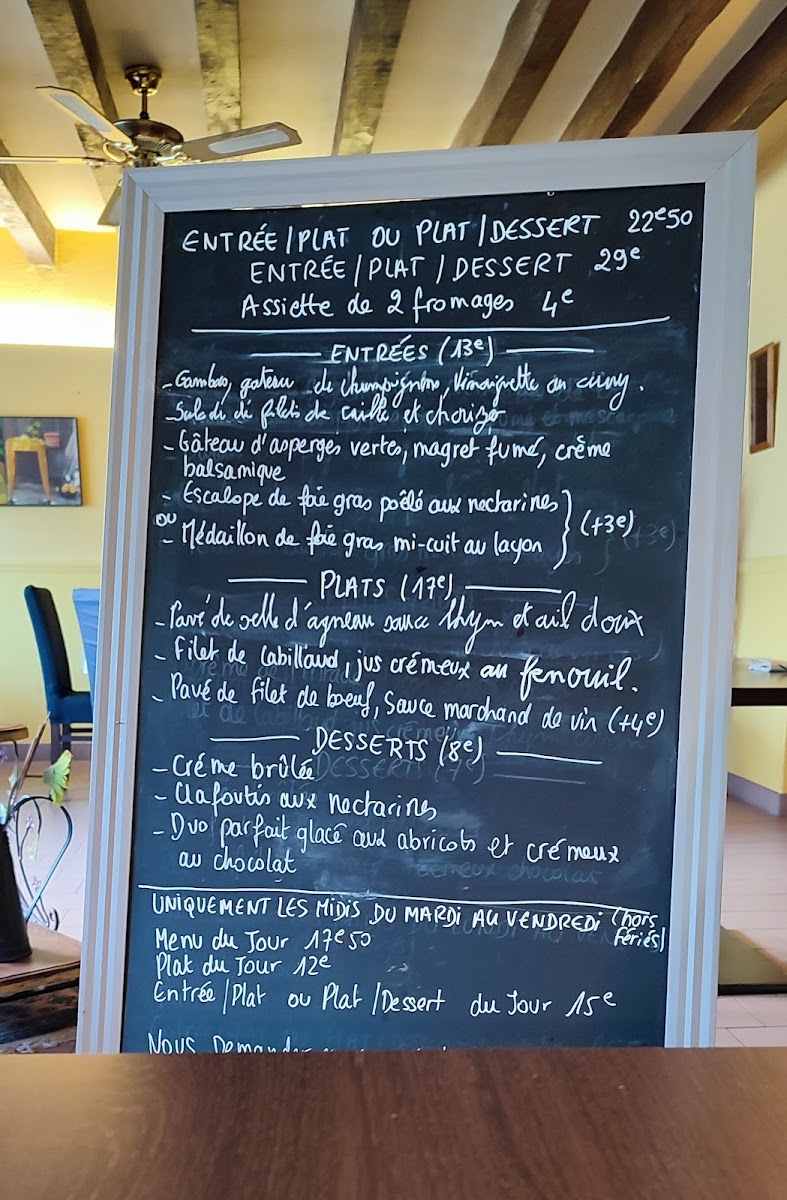 ENTRÉE/PLAT OU PLAT/DESSERT 22e50
ENTRÉE/PLAT/DESSERT 29e
Assiette de 2 fromages 4e
ENTRÉES (13e)
- Gambas, gateau de champignons, Vinaigrette au curry.
- Salade de filets de caille et chorizo
- Gâteau d'asperges vertes, magret fumé, crème
balsamique
- Escalope de foie gras poêlé aux nectarines
ou
- Médaillon de foie gras mi-cuit au layon
(+3e)
PLATS (17e)
- Pavé de selle d'agneau sauce thym et ail doux
- Filet de Cabillaud, jus crémeux au fenouil.
- Pavé de filet de boeuf, Sauce marchand de vin (+4e)
DESSERTS (8e)
- Créme brûlée
- Clafoutis aux nectarines
- Duo parfait glacé aux abricots et crémeux
au chocolat
UNIQUEMENT LES MIDIS DU MARDI AU VENDREDI (hors
fériés)
Menu du Jour 17e50
Plat du Jour 12e
Entrée/Plat ou Plat/Dessert du Jour 15e
Nous